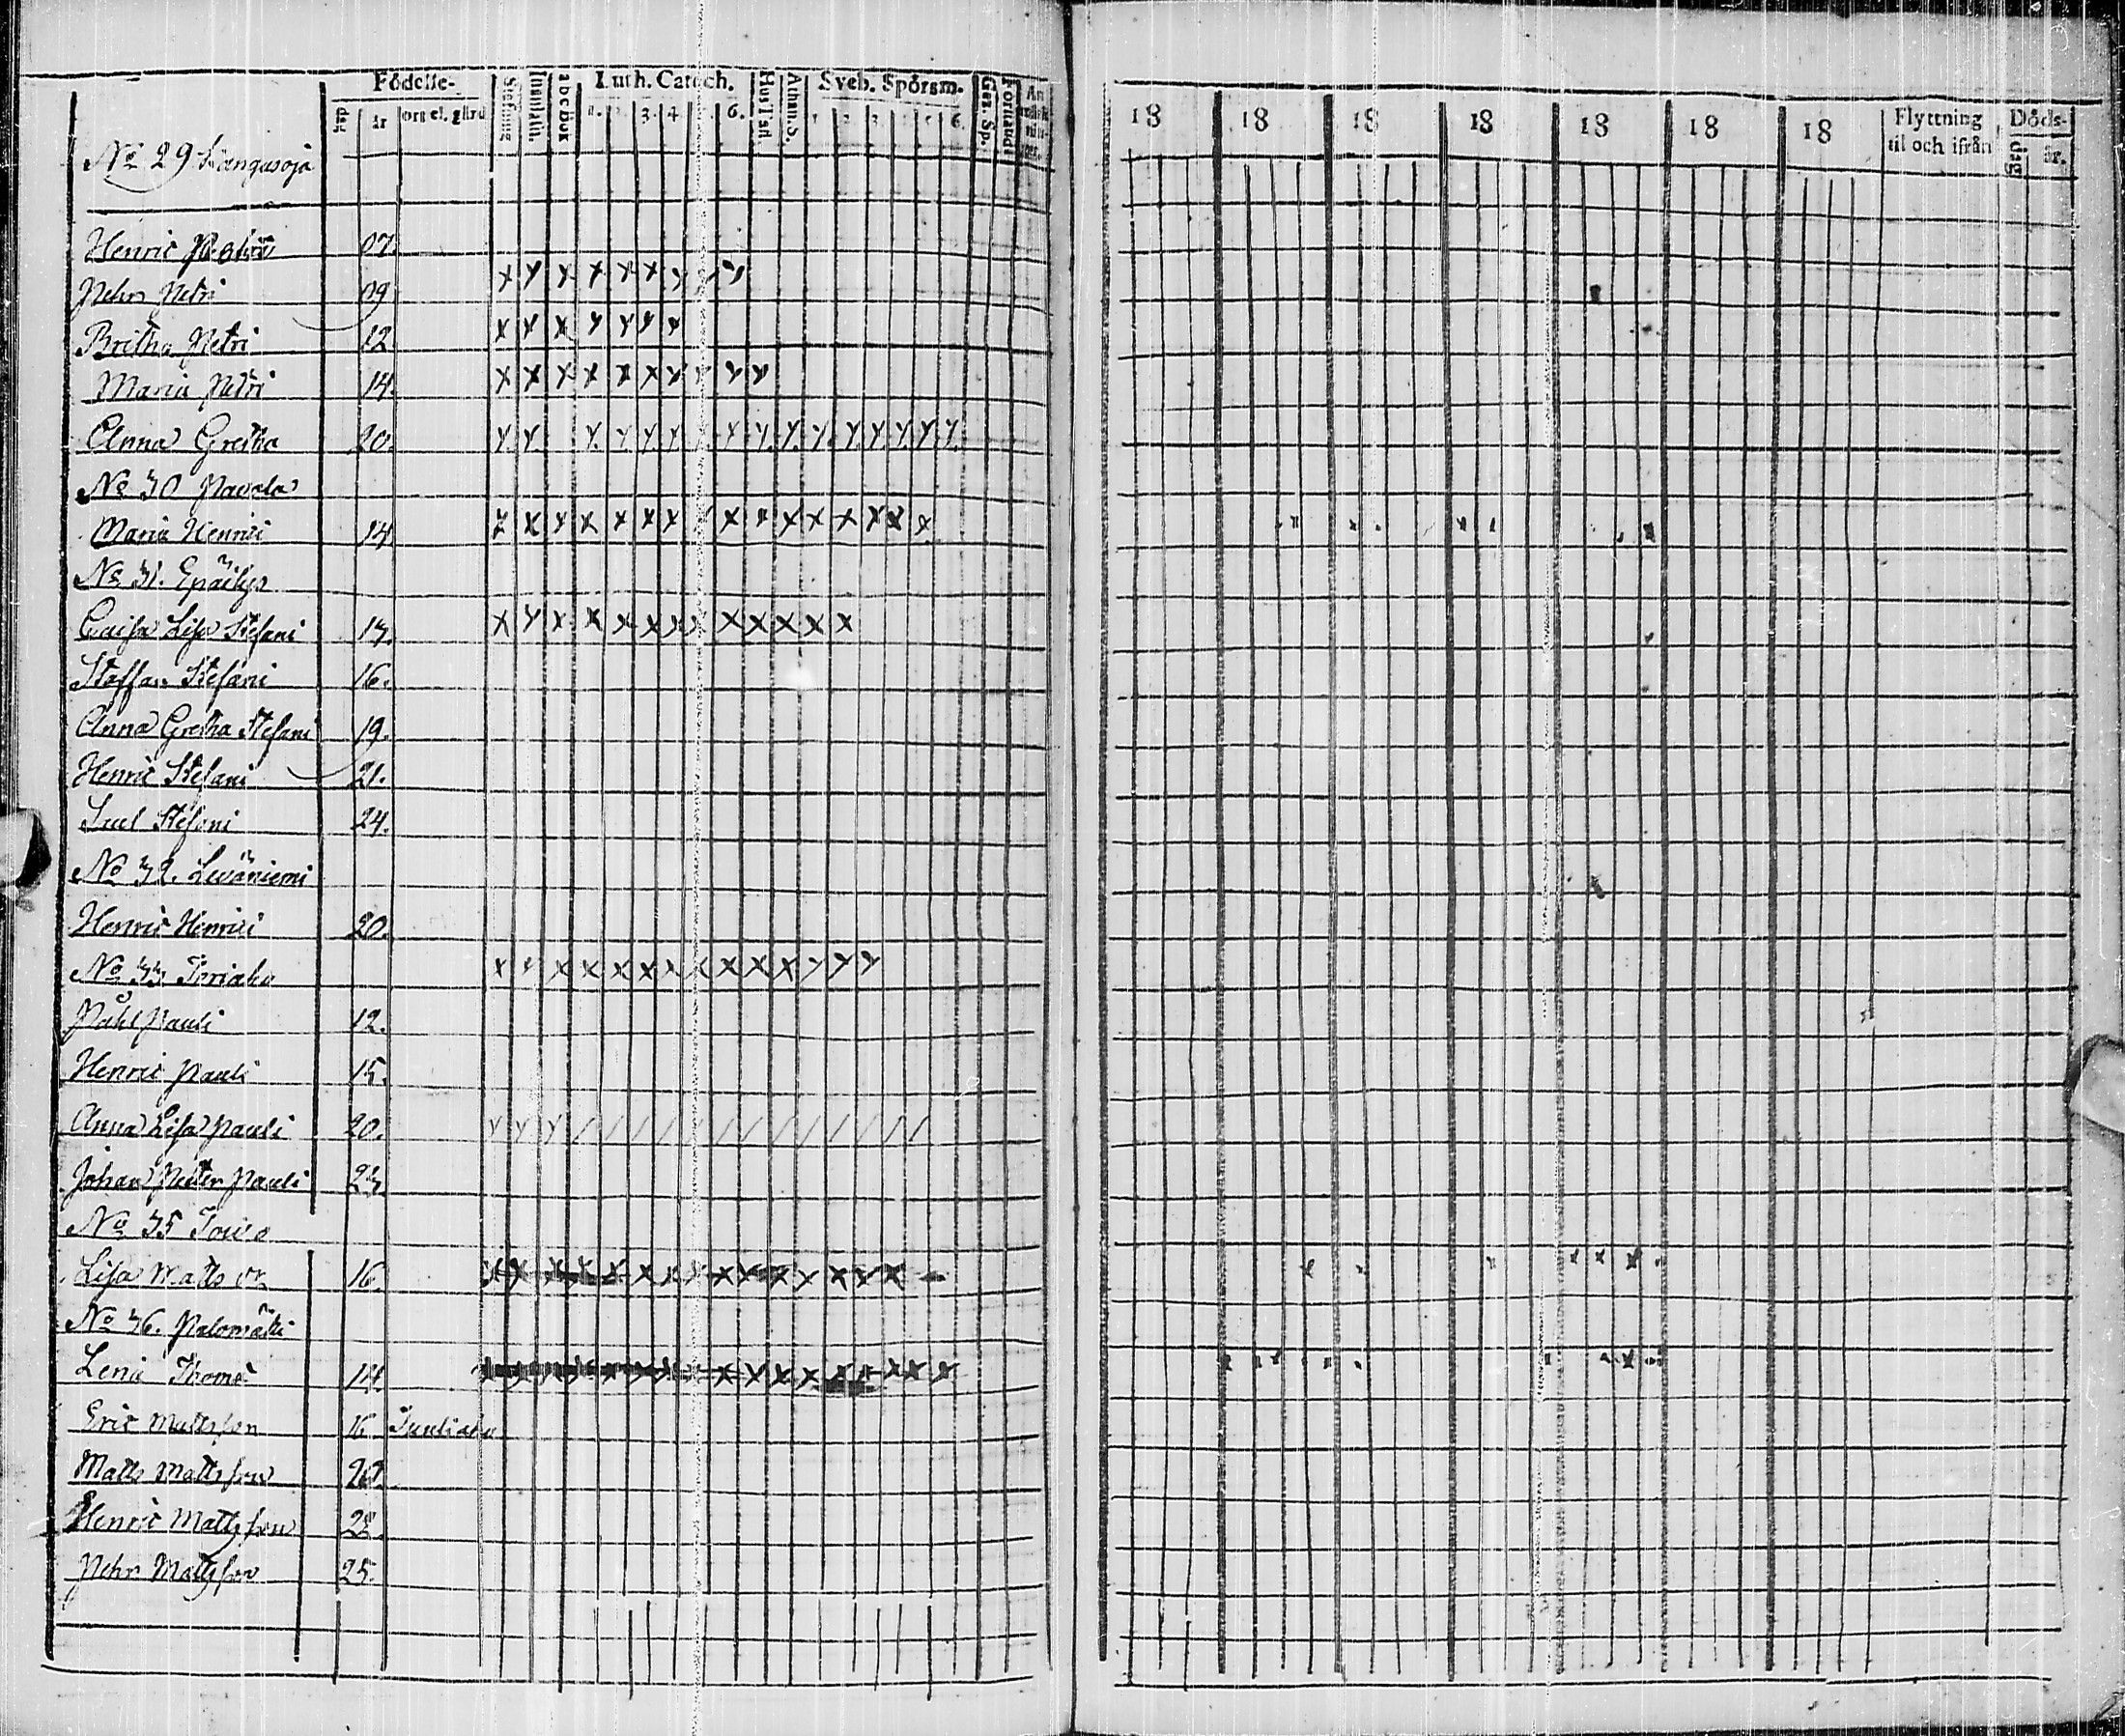 Födelse- Stafning Innanläs. abc Bok Luth. Catech. Hus Tafl. Athan. S. Sveb. Spörsm. Gez. Sp. Förstånd
dag år ort el. gård 1. 2. 3. 4. 6. 1 2 3 6.
No 29 Kangasoja
Henric Petri 07.
Pehr Petri 09
Britha Petri 12.
Maria Petri 14.
Anna Gretha 20.
No 30 Pavola
Maria Henrici 14
No 31. Epäilys
Caisa Lisa Stefani 13.
Staffan Stefani 16.
Anna Gretha Stefani 19.
Henric Stefani 21.
Juel Stefani 24.
No 32. Leväniemi
Henric Henrici 20.
No 33
Påhl Pauli 12.
Henric Pauli 15.
Anna Lisa Pauli 20.
Johan Petter Pauli 23.
No 35
Lisa Matts dr 16.
No 36. Palomäki
Lena Thomæ 14.
Eric Mattsson 16
Matts Mattsson 20.
Henric Mattsson 22.
Pehr Mattsson 25.
18 18 18 18 18 18 18 Flyttning til och ifrån Döds-
dag år.